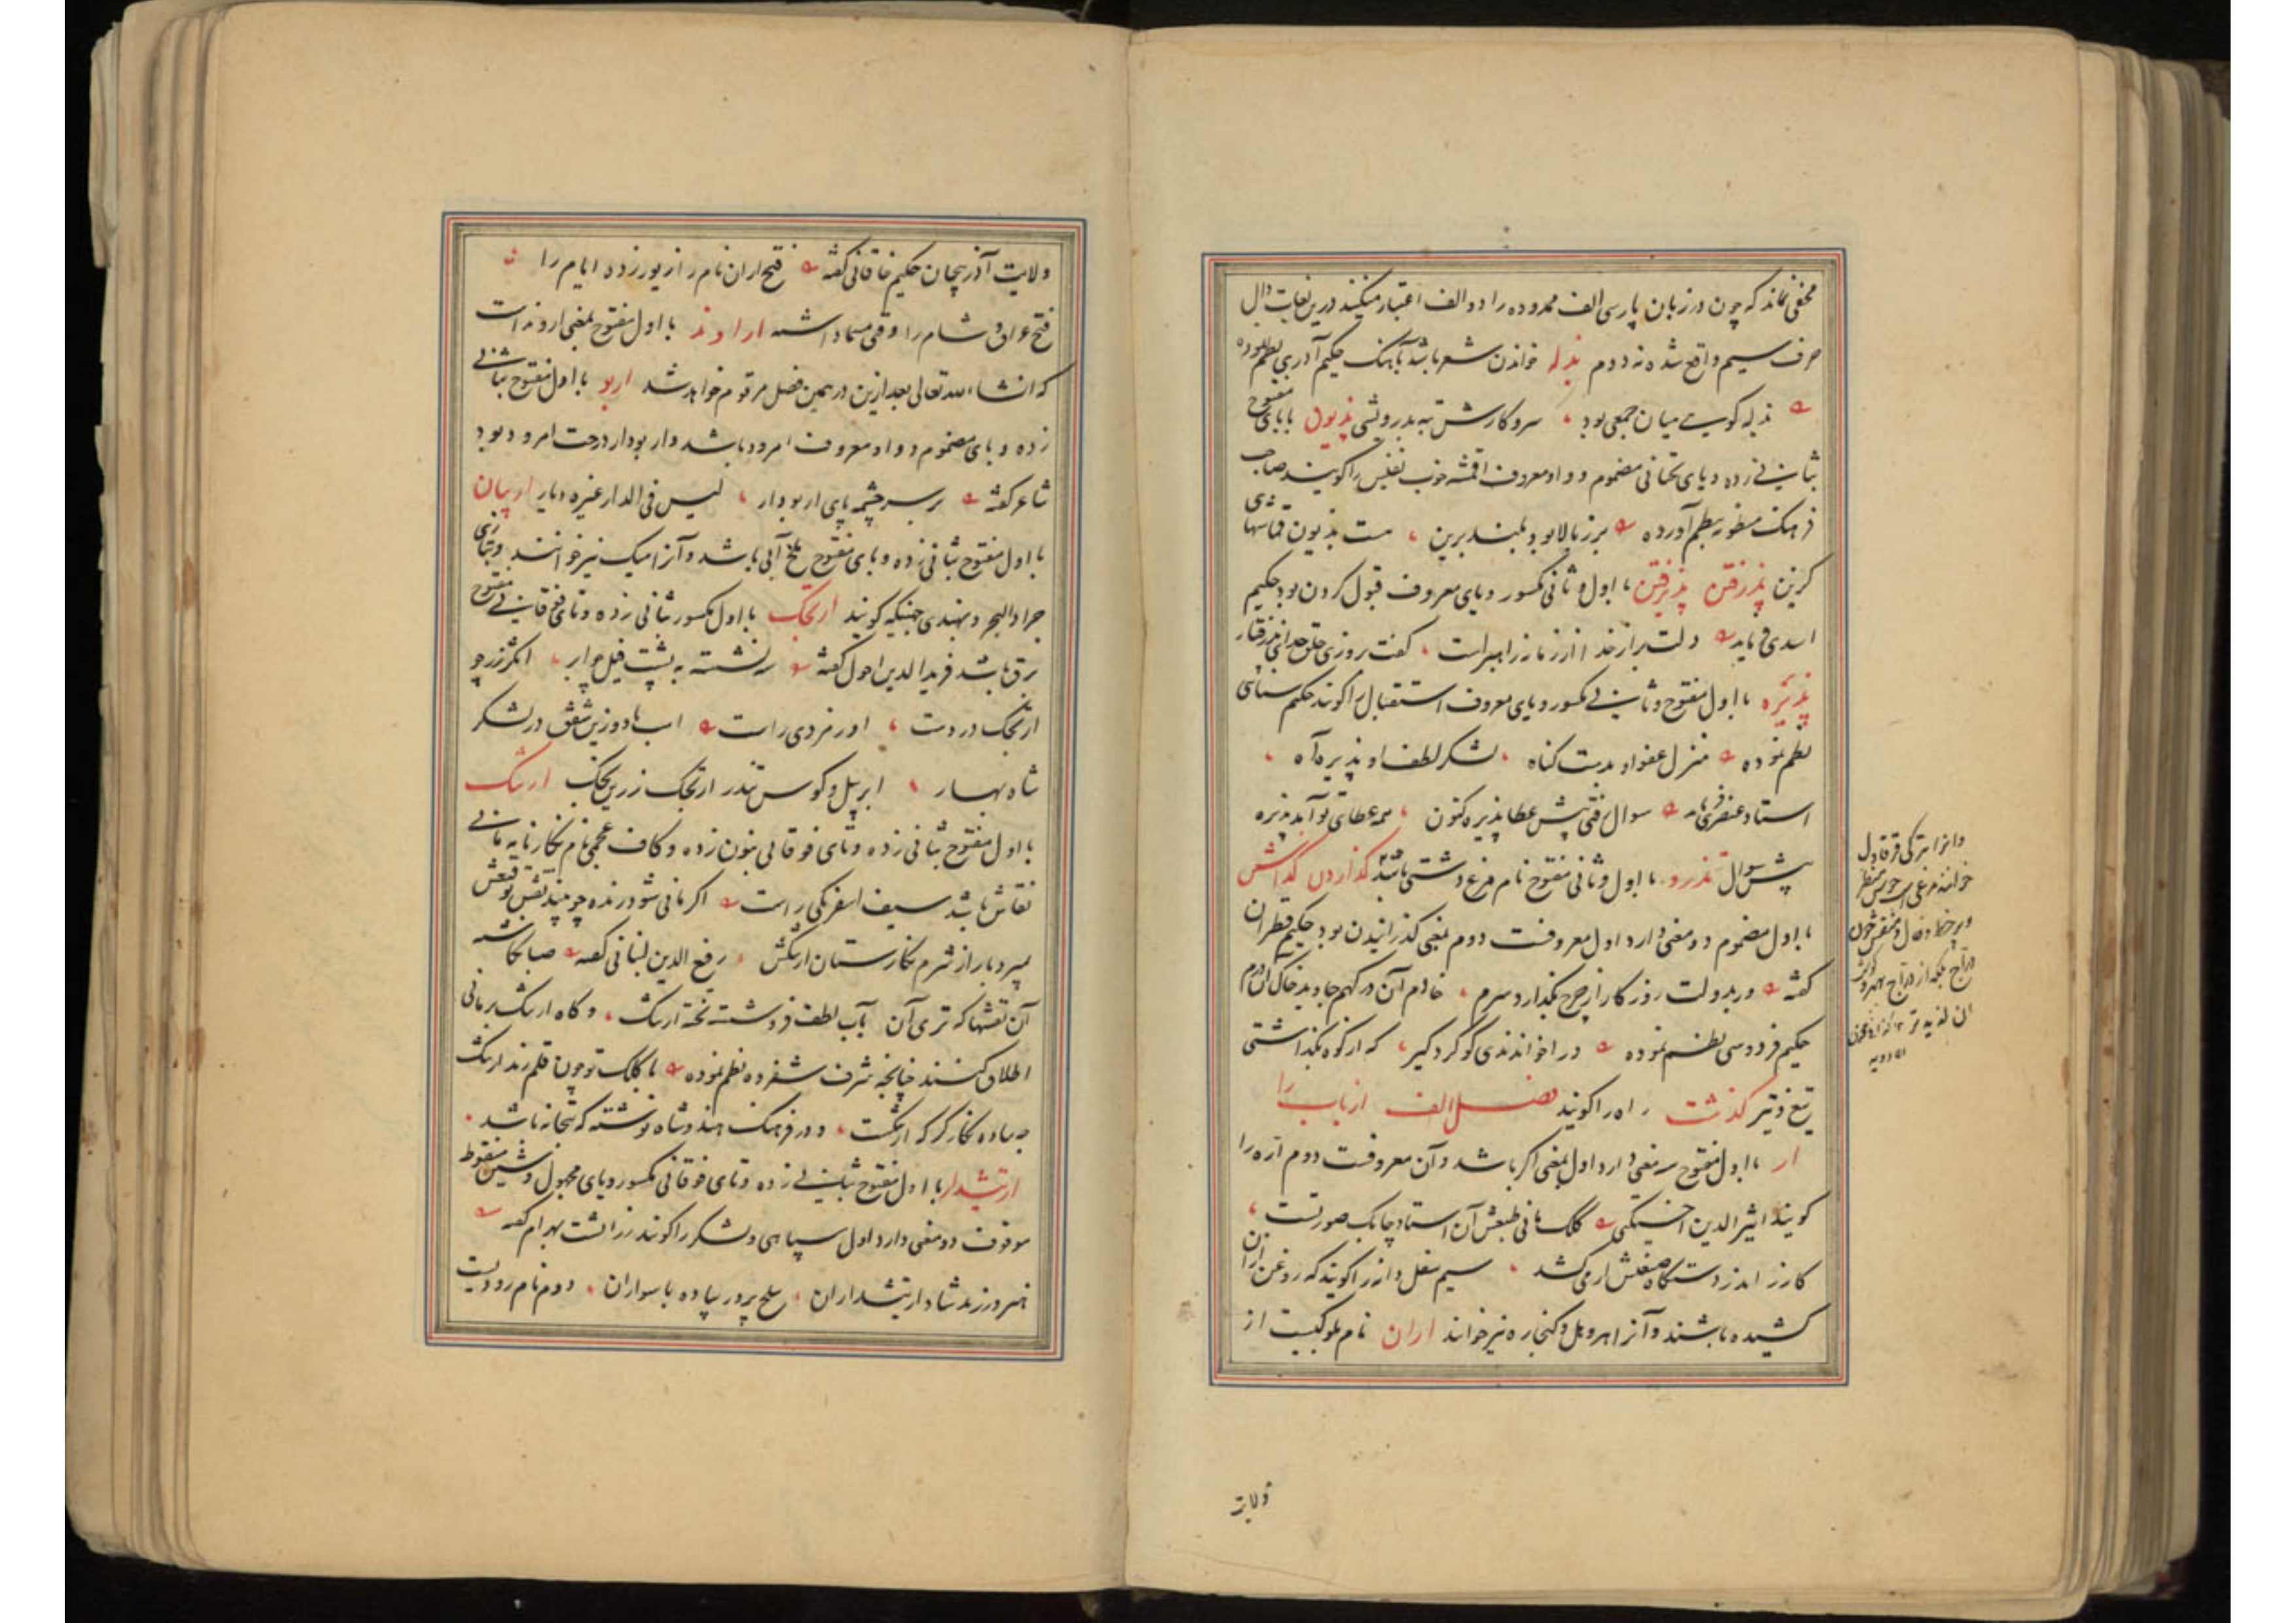 مخفی نماند که چون در زبان پارسی الف ممدوده را دو الف اعتبار میکنند درین لغات دال
حرف سیم واقع شده نه دوم بذله خواندن شعر باشد بآهنگ حکیم آذری نظم نموده
بذله گویی میان جمعی بود سر و کارش به بدروشی بذیون با بای مفتوح
بثانی زده و یای تحتانی مضموم و واو معروف اقمشه خوب نفیس را گویند صاحب
فرهنگ منظومه نظم آورده برز بالا بود بلند برین هست بذیون قماشهای
گزین پذرفتن پذیرفتن با اول و ثانی مکسور و یای معروف قبول کردن بود حکیم
اسدی فرماید
پذیره با اول مفتوح و ثانی مکسور و یای معروف استقبال را گویند حکیم سنائی
نظم نموده منزل عفو او بدشت گناه لشکر لطف او پذیره آه
استاد عنصری فرماید سوال رفتی پیش عطا پذیره کنون همه عطای تو آید پذیره
پیش سوال تذرو با اول و ثانی مفتوح نام مرغ دشتی باشد گذاردن گذاشتن
با اول مضموم دو معنی دارد اول معروفست دوم بمعنی گذرانیدن بود حکیم قطران
گفته ور بدولت روزگار از چرخ بگذارد سرم خادم آن درگهم جاوید خاک آن درم
حکیم فردوسی نظم نموده که از کوه بگذاشتی
تیغ و تیر گذشت راه را گویند فصل الف از باب را
ار با اول مفتوح سه معنی دارد اول بمعنی اگر باشد و آن معروفست دوم اره را
گویند اثیر الدین اخسیکتی کلک مانی طبعش آن استاد چابک صورتست
کارزار اندر دستگاه صنعتش ار می کشد سیم ثفل دانه را گویند که روغن ازان
کشیده باشند و آنرا هروبل و کنجاره نیز خوانند اران نام ملوکیست از
و آنرا بترکی قرقاول
خوانند مرغی است خوش منظر
ولایت
ولایت آذربیجان حکیم خاقانی گفته فتح اران نام را زیور زده ایام را
فتح عراق و شام را وقتی مسما داشته اراوند با اول مفتوح بمعنی اروند است
که انشاء الله تعالی بعد ازین در همین فصل مرقوم خواهد شد اربو با اول مفتوح بثانی
زده و بای مضموم و واو معروف امرود باشد و اربودار درخت امرود بود
شاعر گفته بر سر چشمه پای اربودار لیس فی الدار غیره دیار اربیان
با اول مفتوح بثانی زده و بای مفتوح ملخ آبی باشد و آنرا میک نیز خوانند و بتازی
جراد البحر و بهندی جهینگه گویند ارتجک با اول مکسور بثانی زده و تای فوقانی مفتوح
برق باشد فرید الدین احول گفته برنشسته به پشت فیل چو ابر انگژ زر چو
ارتجک در دست اورمزدی راست اسب بادو زین شفق در لشکر
شاه بهار ابر پیل و کوس تندر ارتجک زرین کجک ارتنگ
با اول مفتوح بثانی زده و تای فوقانی بنون زده و کاف عجمی نام نگارنامه مانی
نقاش باشد سیف اسفرنگی راست اگر مانی شود زنده چو بیند نقش توقیعش
بمیرد باز از شرم نگارستان ارتنگش رفیع الدین لنبانی گفته صبا نگاشته
آن نقشها که تری آن بآب لطف فروشسته تخته ارتنگ و گاه ارتنگ بر مانی
اطلاق کنند چنانچه شرف شفروه نظم نموده با کلک تو چون قلم زند ارتنگ
چه ساده نگارگر که ارتنگست و در فرهنگ هندوشاه نوشته که بتخانه باشد
ارتیشدار با اول مفتوح بثانی زده و تای فوقانی مکسور و یای مجهول و شین منقوط
موقوف دو معنی دارد اول سپاهی و لشکر را گویند زراتشت بهرام گفته
بهر ورزند شاد ارتیشداران سلح پرور پیاده با سواران دوم نام رودیست